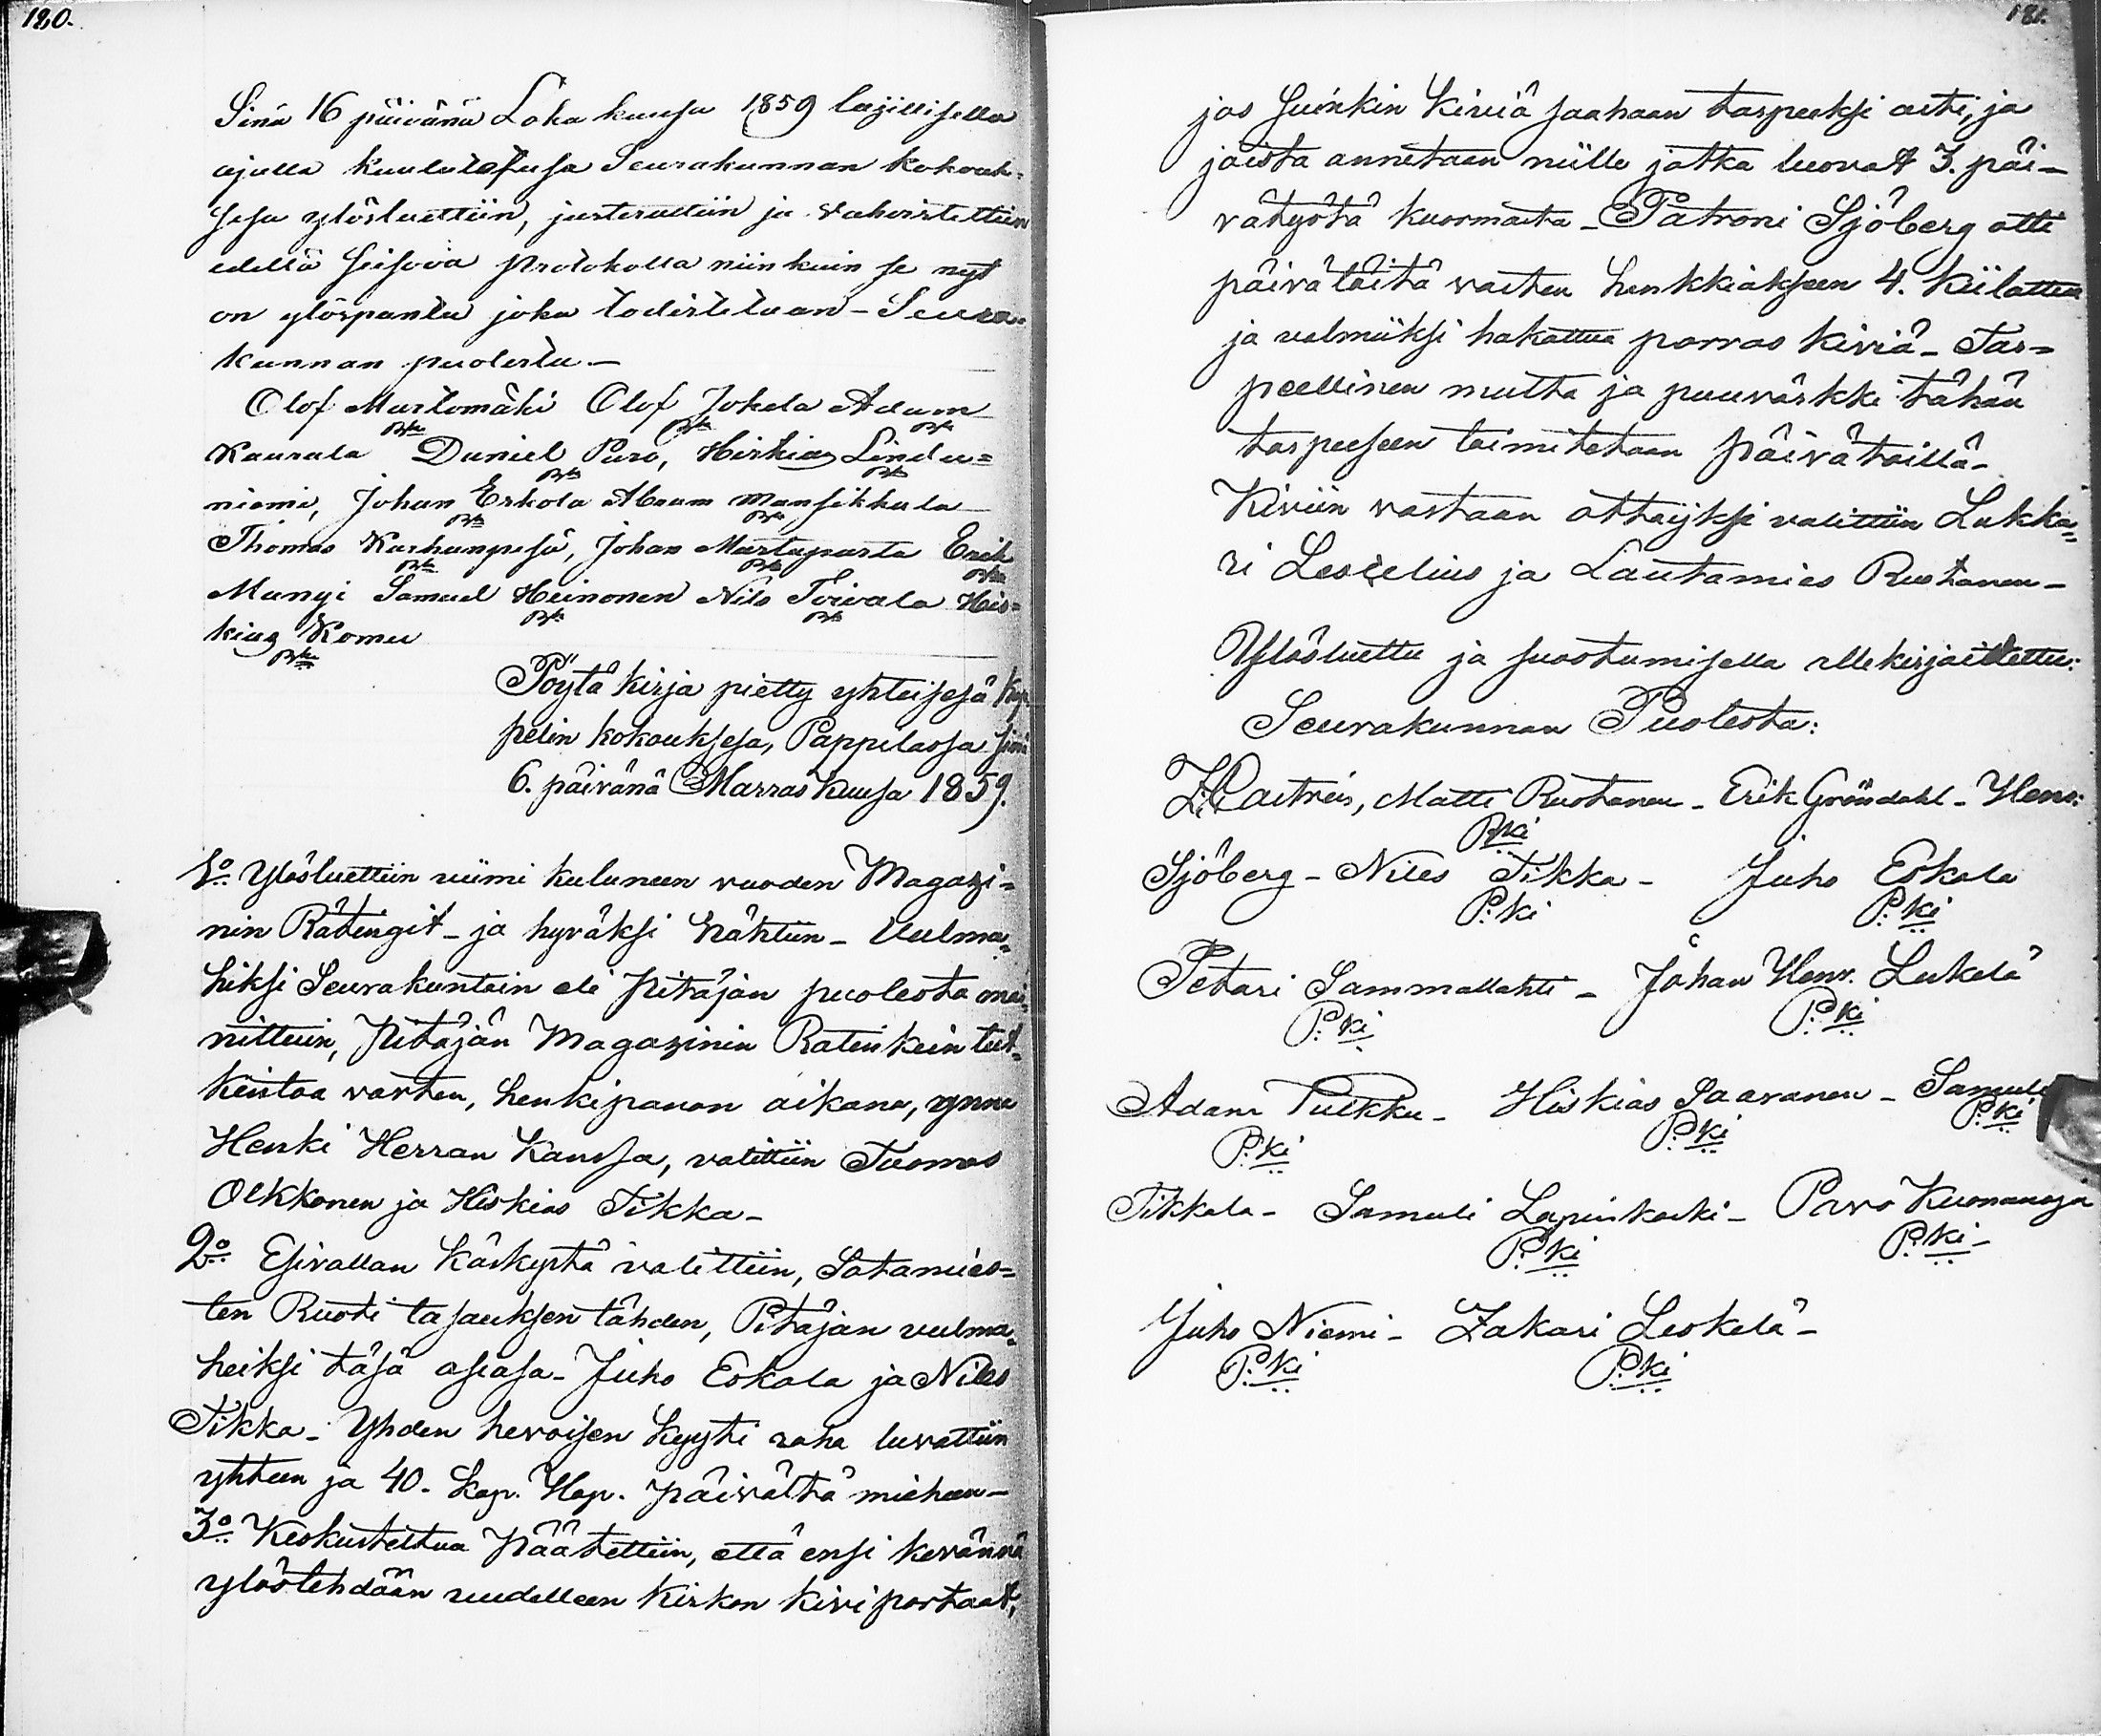 120.
Sinä 16 päivänä Loka kuusa 1859 lajillisella
ajalla kuulutetusa Seurakunnan kokouk-
sesa ylösluettiin, justerattiin ja vahvistettiin
edellä seisova protokolla niinkuin se nyt
on ylöspantu joka todistetaan - Seura-
kunnan puolesta -
Olof Martomäki Olof Jokela Adam
Kaurala Daniel Puro, Hiskias Linda=
niemi, Johan Erkola Abram Mansikkala
Thomas Karhunpesä, Johan Martaparta Erik
Mungi Samuel Heinonen Nils Toivala His=
kias Komu
Pöytä kirja pietty yhteisesä Kap-
pelin kokouksesa, Pappilassa sinä
6. päivänä Marras Kuusa 1859.
1:o Ylösluettiin viimi kuluneen vuoden Magazi=
nin Rätingit - ja hyväksi nähtiin - Uulma-
hiksi Seurakuntain eli Pitäjän puolesta mai-
nittuin, Pitäjän Magazinin Ratinkein tut-
kintoa varten, henkipanon aikana, ynnä
Henki Herran Kanssa, valittiin Tuomas
Olkkonen ja Hiskias Tikka -
2:o Esivallan käskystä valittiin, Sotamies=
ten Ruoti tasauksen tähden, Pitäjän uulma-
heiksi täsä asiasa - Juho Eskola ja Niles
Tikka - Yhden hevoisen kyyti raha luvattiin
yhteen ja 40. kop. Hop. päivältä mieheen -
3:o Keskusteltua päätettiin, että ensi kevännä
ylöstehdään uudelleen Kirkon kivi portaat,
121.
jos suinkin kiviä saahaan tarpeeksi asti, ja
joista annetaan niille jotka luovat 3. päi-
vätyötä kuormasta - Patroni Sjöberg otti
päivätöitä vasten hankkiakseen 4. kiilattua
ja valmiiksi hakattua porras kiviä - Tar=
peellinen multa ja puuvärkki tähän
tarpeeseen toimitetaan päivätöillä -
Kiviin vastaan ottajiksi valittiin Lukka=
ri Leselius ja Lautamies Rustanen -
Ylösluettu ja suostumisella allekirjoitettu:
Seurakunnan Puolesta:
Matti Rustanen - Erik Gröndahl - Henr:
P:ki
Sjöberg - Niles Tikka - Juho Eskola
P:ki P:ki
Petari Sammallahti - Johan Henr. Leskelä
P:ki P:ki
Adam Pulkku - Hiskias Saaranen - Samuli
P:ki P:ki P:ki
Tikkala - Samuli Lapinkoski - Pavo Kuonanoja
P:ki P:ki -
Juho Niemi - Zakari Leskelä -
P:ki P:ki